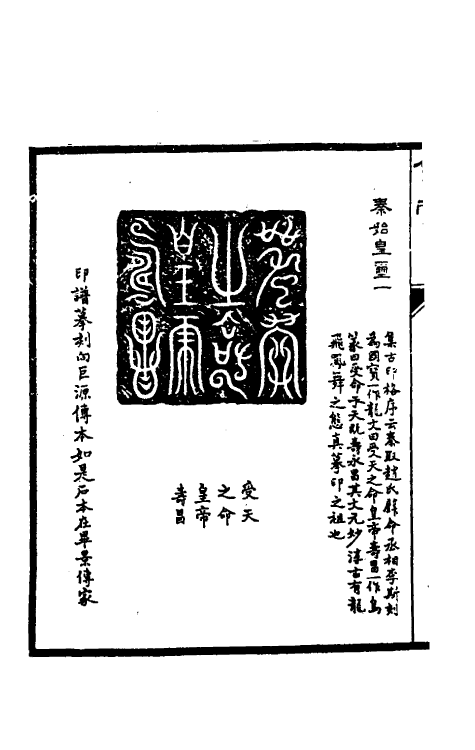 秦始皇璽一
集古印格序云秦取趙氏䤼命丞相李斯刻
為國寶一作龍文曰受天之命皇帝壽昌一作鳥
篆曰受命于天既壽永昌其文元妙淳古有龍
飛鳳舞之態真摹印之祖也
受天之命皇帝壽昌
受天
之命
皇帝
壽昌
印譜摹刻向巨源傳本如是石本在畢景傳家